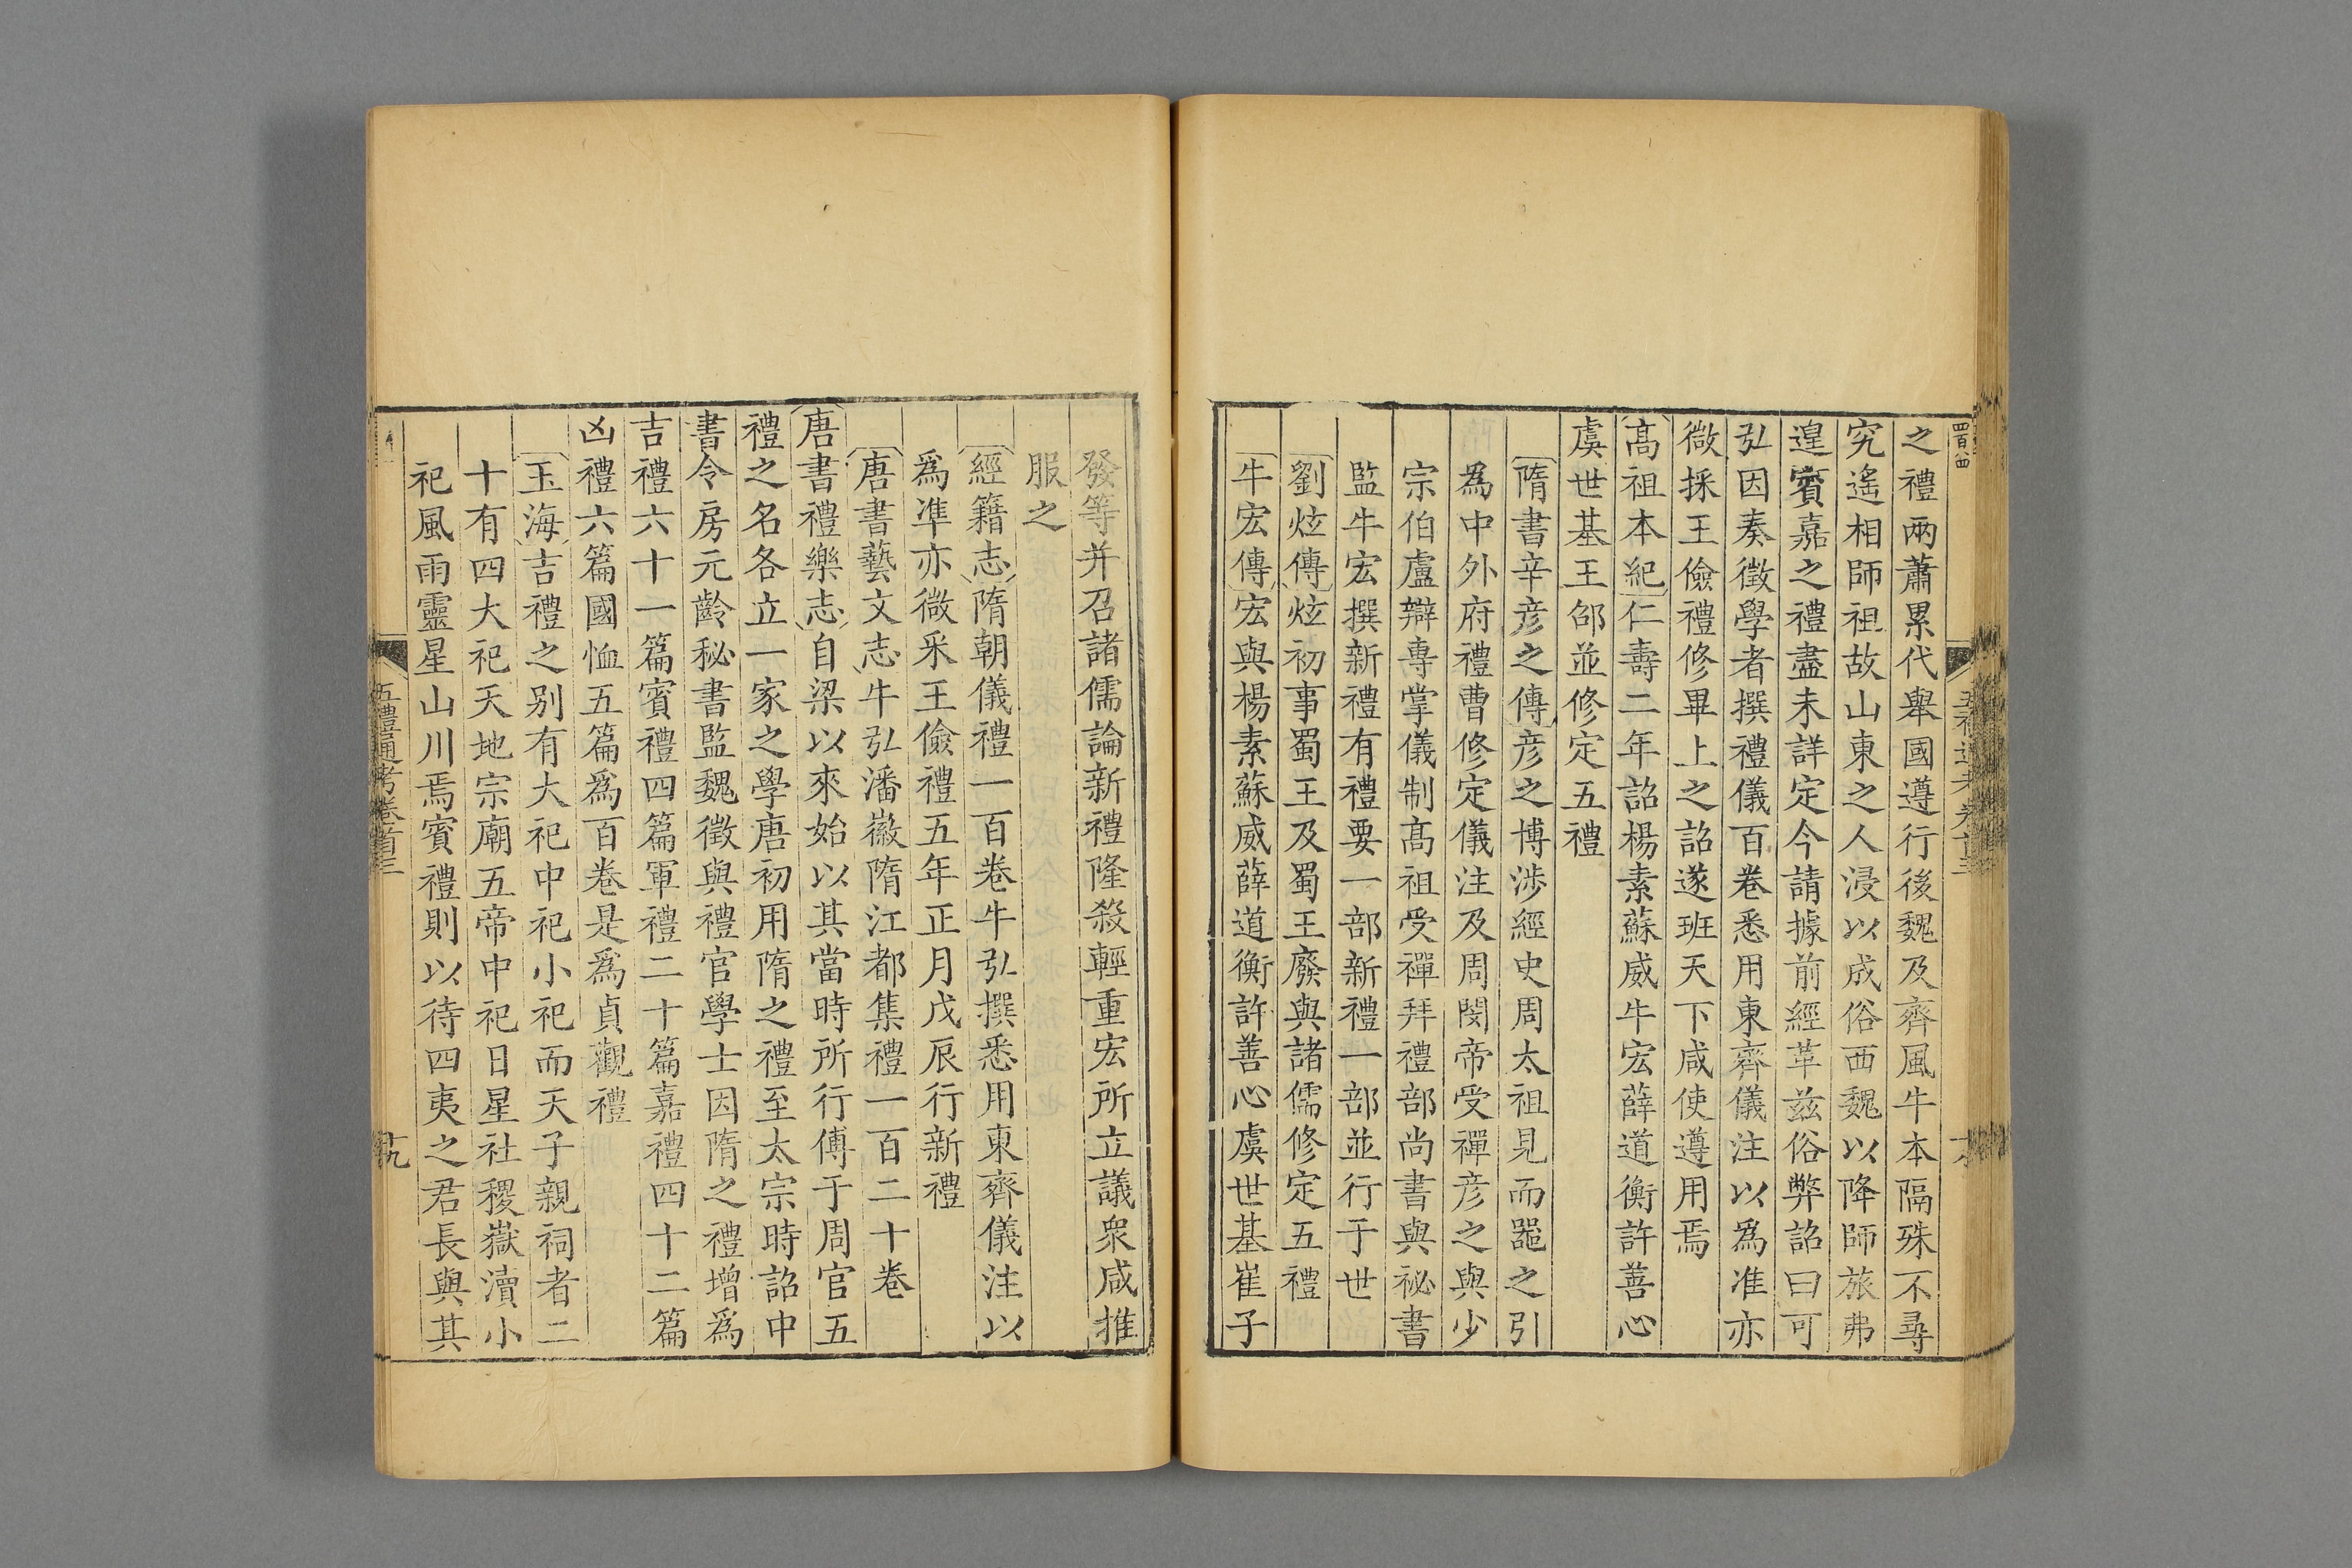 四百四
之禮兩蕭累代舉國遵行後魏及齊風牛本隔殊不尋
究遙相師祖故山東之人浸以成俗西魏以降師旅弗
遑賓嘉之禮盡未詳定今請據前經革兹俗弊詔曰可
弘因奏徵學者撰禮儀百卷悉用東齊儀注以爲准亦
微採王儉禮修畢上之詔遂班天下咸使遵用焉
高祖本紀仁壽二年詔楊素蘇威牛宏薛道衡許善心
虞世基王劭並修定五禮
隋書辛彦之傳彦之博涉經史周太祖見而器之引
爲中外府禮曹修定儀注及周閔帝受禪彦之與少
宗伯盧辯專掌儀制高祖受禪拜禮部尚書與祕書
監牛宏撰新禮有禮要一部新禮一部並行于世
劉炫傳炫初事蜀王及蜀王廢與諸儒修定五禮
牛宏傳宏與楊素蘇威薛道衡許善心虞世基崔子
發等并召諸儒論新禮隆殺輕重宏所立議衆咸推
服之
經籍志隋朝儀禮一百卷牛弘撰悉用東齊儀注以
爲準亦微采王儉禮五年正月戊辰行新禮
唐書藝文志牛弘潘徽隋江都集禮一百二十卷
唐書禮樂志自梁以來始以其當時所行傅于周官五
禮之名各立一家之學唐初用隋之禮至太宗時詔中
書令房元齡秘書監魏徵與禮官學士因隋之禮增爲
吉禮六十一篇賓禮四篇軍禮二十篇嘉禮四十二篇
凶禮六篇國恤五篇爲百卷是爲貞觀禮
玉海吉禮之别有大祀中祀小祀而天子親祠者二
十有四大祀天地宗廟五帝中祀日星社稷嶽瀆小
祀風雨靈星山川焉賓禮則以待四夷之君長與其
五禮通考卷首三
十九